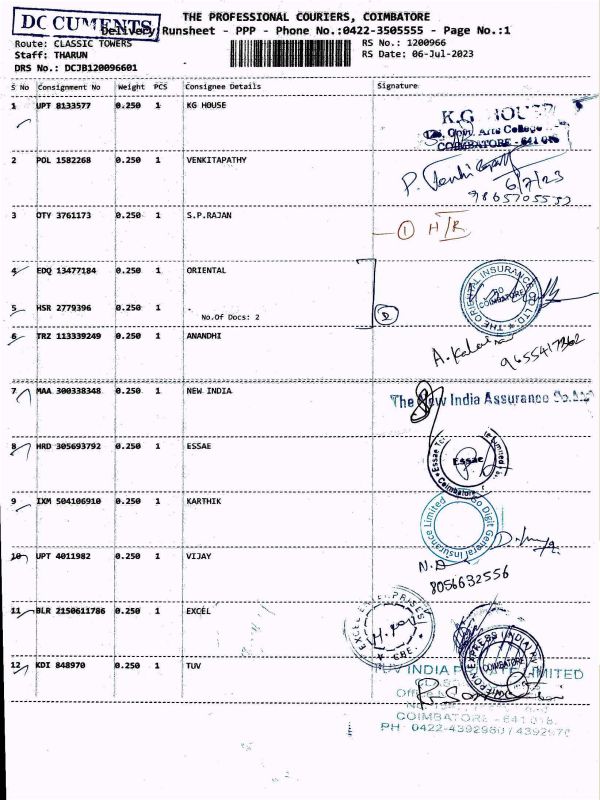 DOCUMENTS
THE PROFESSIONAL COURIERS, COIMBATORE
Delivery Runsheet - PPP - Phone No.:0422-3505555 - Page No.:1
Route: CLASSIC TOWERS
RS No.: 1200966
Staff: THARUN
RS Date: 06-Jul-2023
DRS No.: DCJB120096601
S No Consignment No Weight PCS Consignee Details Signature
1 UPT 8133577 0.250 1 KG HOUSE
K.G HOUSE
Govt. Arts College
COIMBATORE - 641 018
2 POL 1582268 0.250 1 VENKITAPATHY
P. Venkitapathy
6/7/23
9865705533
3 OTY 3761173 0.250 1 S.P.RAJAN
1 H/R
4 EDQ 13477184 0.250 1 ORIENTAL
THE ORIENTAL INSURANCE CO LTD
COIMBATORE
5 HSR 2779396 0.250 1
No.Of Docs: 2
D
6 TRZ 113339249 0.250 1 ANANDHI
9655417362
7 MAA 300338348 0.250 1 NEW INDIA
The New India Assurance Co.Ltd
8 HRD 305693792 0.250 1 ESSAE
Essae
Limited
Coimbatore
9 IXM 504106910 0.250 1 KARTHIK
Go Digit General Insurance Limited
10 UPT 4011982 0.250 1 VIJAY
8056632556
11 BLR 2150611786 0.250 1 EXCEL
EXCEL ENTERPRISES
CBE
EXPRESS INDIA
COIMBATORE
12 KDI 848970 0.250 1 TUV
TUV INDIA PRIVATE LIMITED
COIMBATORE - 641 018.
PH : 0422-4392980 / 4392970